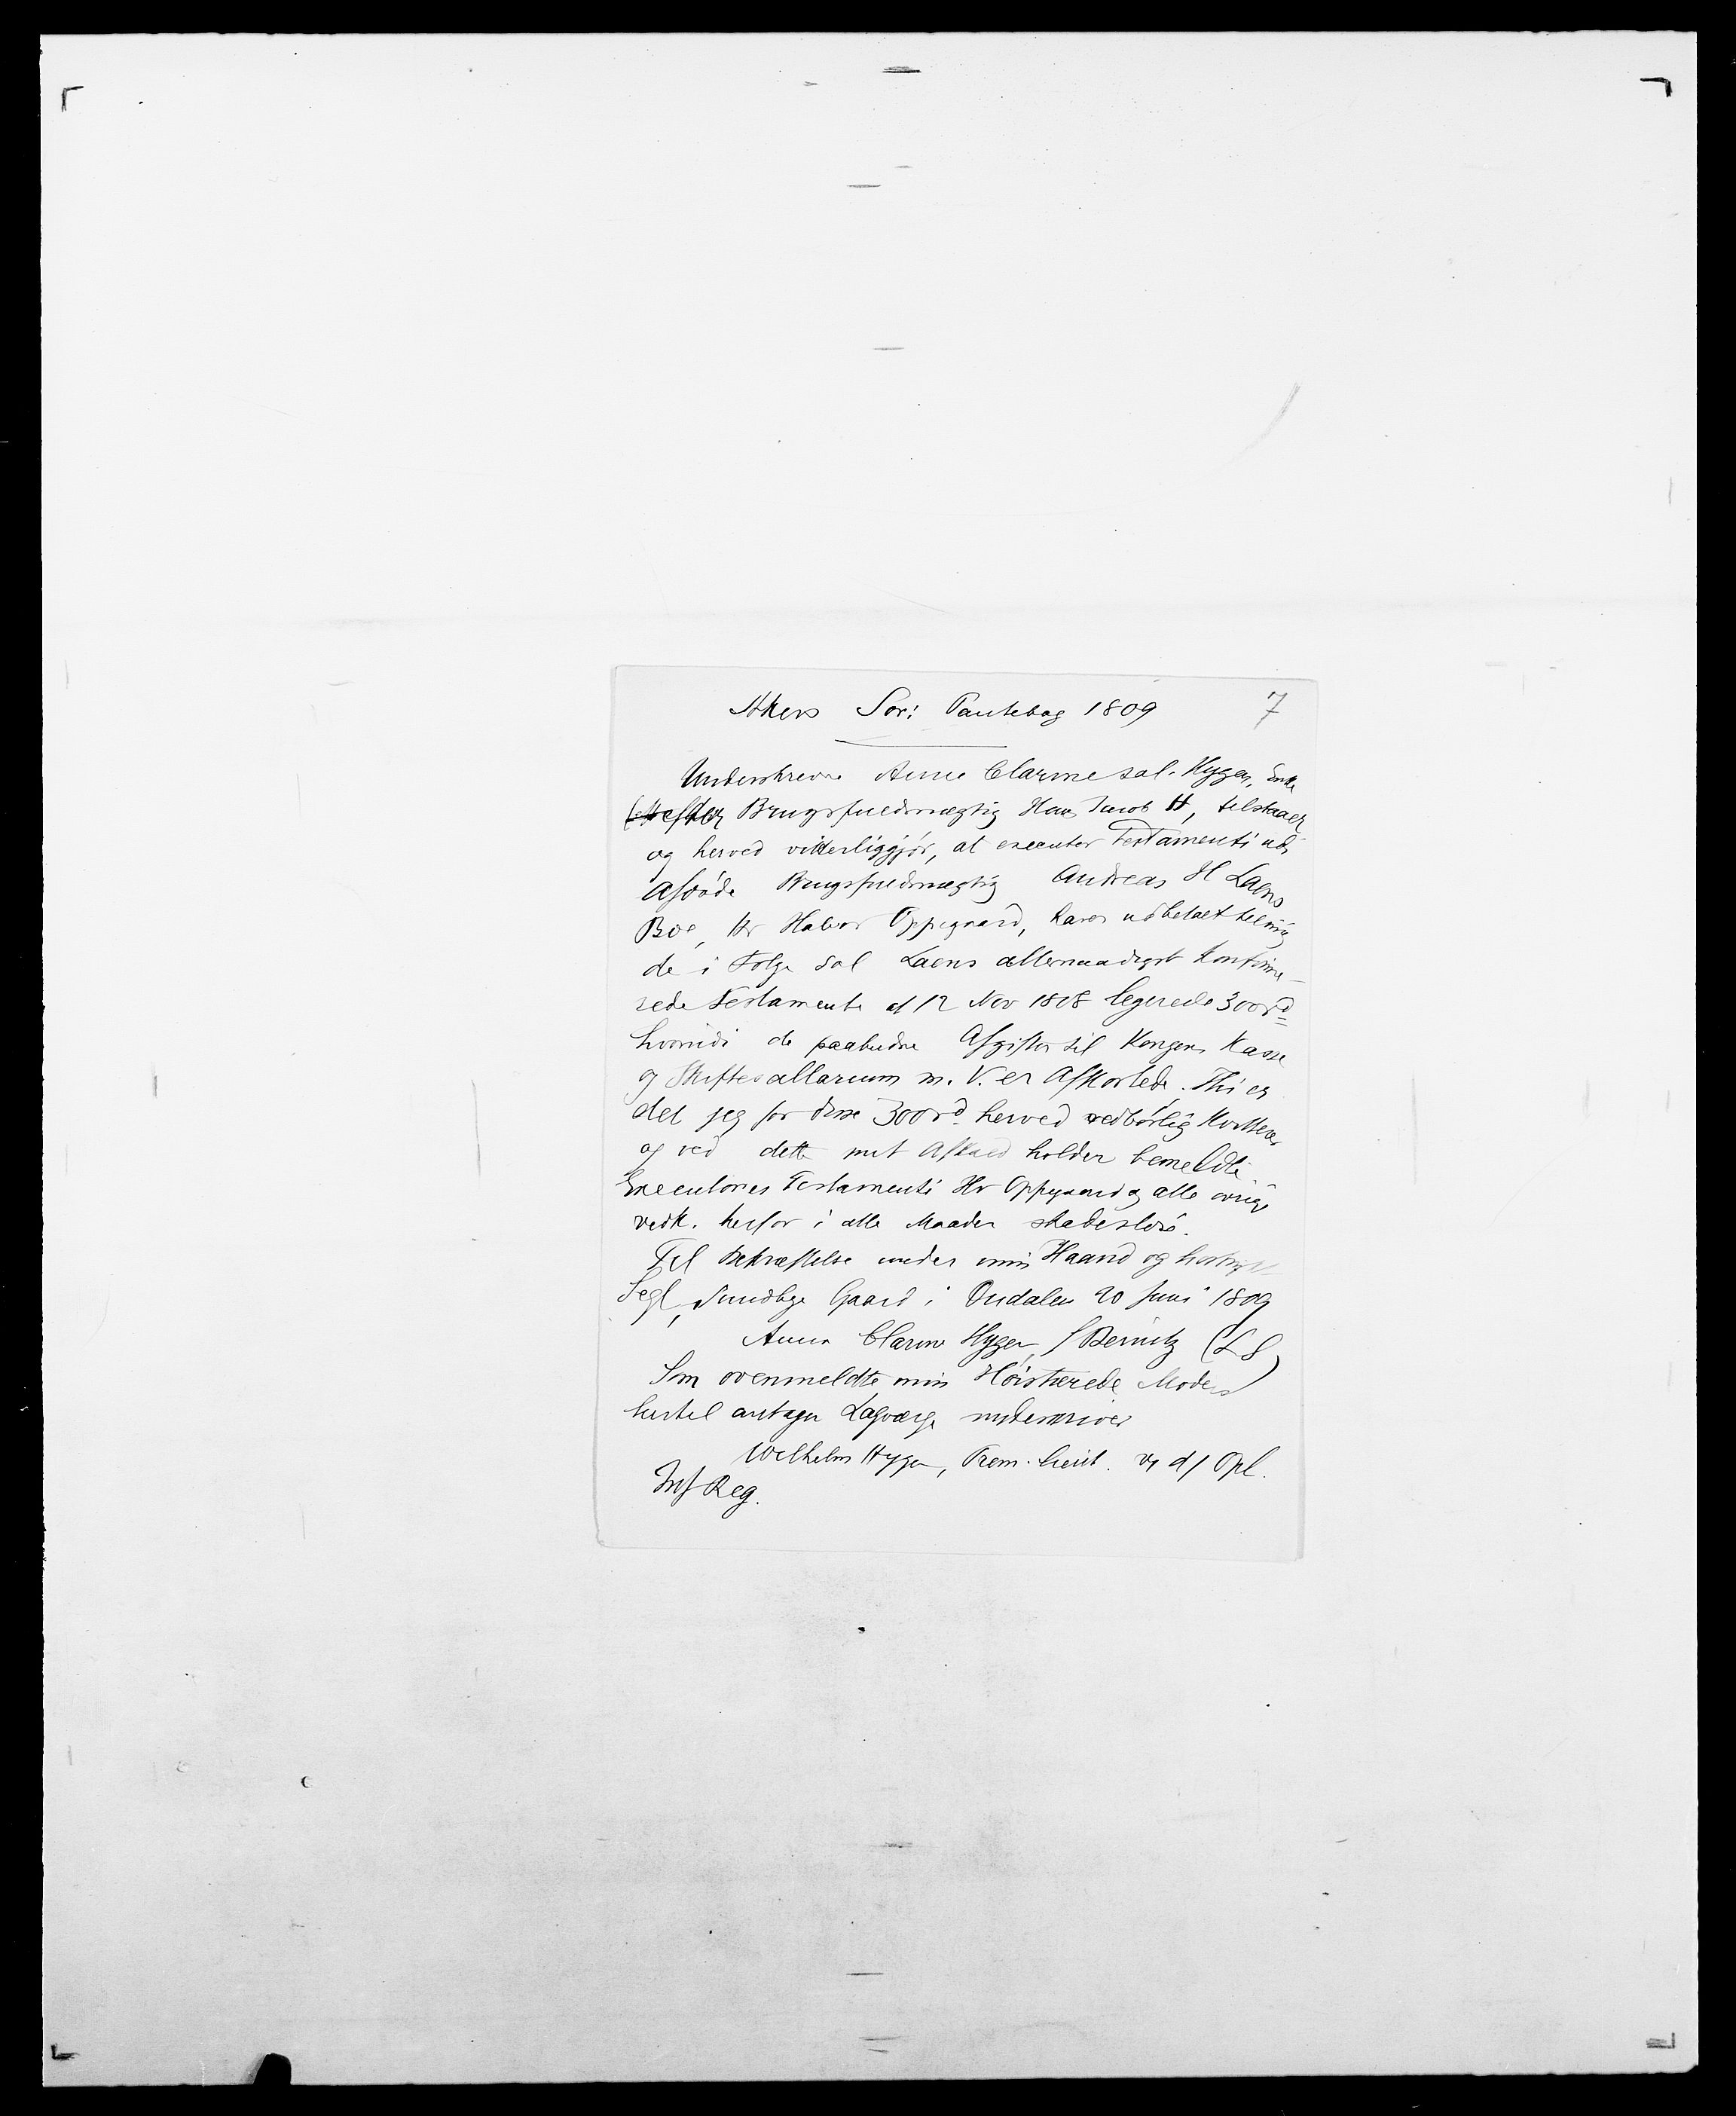 Akers Sor: Pantebog 1809 7
Underskrevne Anne Clarine sal. Hygen, Enke
efter Brugsfuldmægtig Hans Jacob H, tilstaaer
og herved vitterliggjör, at executor Testamenti udi
Afdöde Brugsfuldmægtig Andreas H Laens
Boe, Hr Halvor Oppegaard, haver udbetalt til mig
de i Fölge Sal Laens allernaadigst konfirme-
rede Testamente af 12 Nov 1808 legerede 300 rd
hvorudi de paabudne Afgifter til Kongens Kasse
og Skiftesallarium m. V. er Afkortede. Thi er
det jeg for disse 300 rd. herved vedbörlig kvitterer
og ved dette mit Afkald holder bemeldte
Executores Testamenti Hr Oppegaard og alle övrige
vedk. herfor i alle Maader skadeslöse.
Til Bekræftelse under min Haand og hostrykte
Segl, Sundbye Gaard i Oudalen 20 Juni 1809
Anna Clarine Hygen, f Bernitz (L S)
Som ovenmeldte min Höistærede Moders
hertil antagne Lagværge underskriver
Wilhelm Hygen, Prem. Lieut. v, df Opl.
Inf Reg.